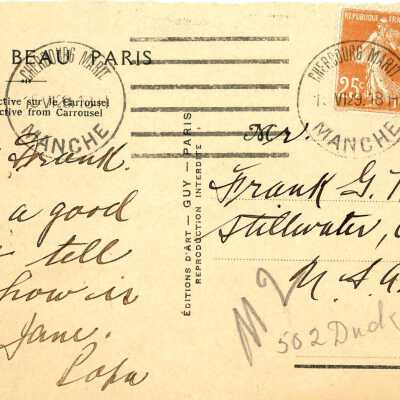 BEAU PARIS
CHERBOURG MARIT
VI 29
MANCHE
ctive sur le Carrousel
ctive from Carrousel
Frank.
a good
tell
how is
Jane.
Papa
EDITIONS D'ART — GUY — PARIS
REPRODUCTION INTERDITE
REPUBLIQUE FRANCAISE
25c
CHERBOURG MARIT
VI 29. 18 H
MANCHE
Mr.
Frank G.
Stillwater,
U.S.A
502 Duck